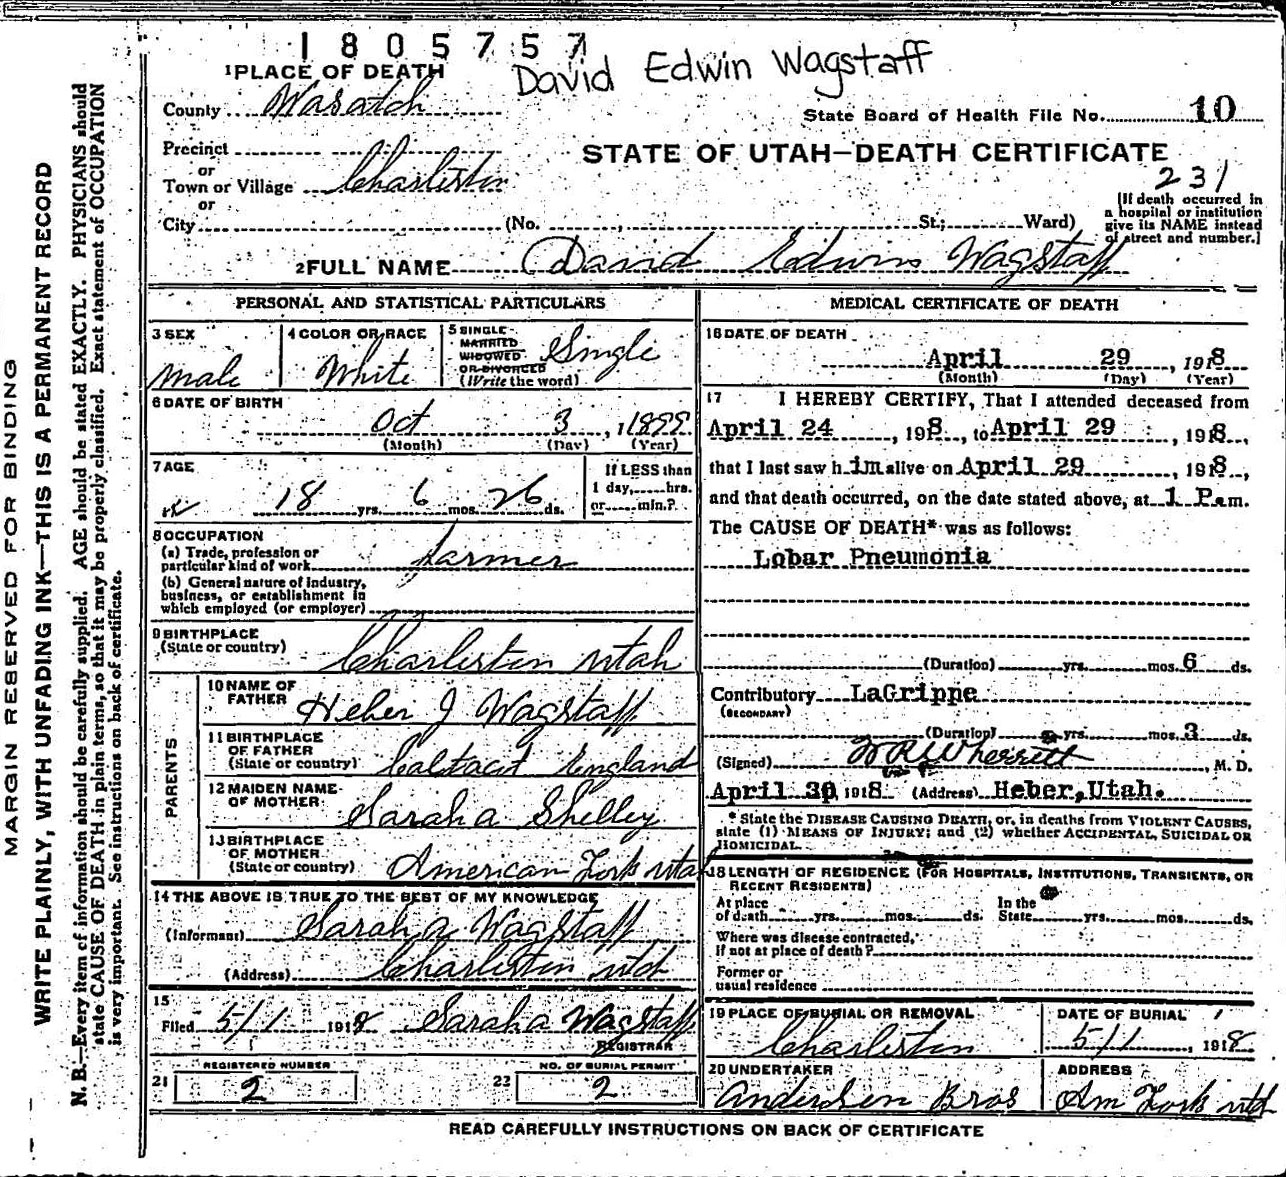 1805757
David Edwin Wagstaff
1 PLACE OF DEATH
County Wasatch
State Board of Health File No. 10
Precinct
or
Town or Village Charleston
or
City
STATE OF UTAH—DEATH CERTIFICATE
231
(No. St; Ward)
[If death occurred in
a hospital or institution
give its NAME instead
of street and number.]
2 FULL NAME David Edwin Wagstaff
PERSONAL AND STATISTICAL PARTICULARS
3 SEX
Male
4 COLOR OR RACE
White
5 SINGLE
MARRIED
WIDOWED
OR DIVORCED
(Write the word)
Single
6 DATE OF BIRTH
Oct 3, 1899
(Month) (Day) (Year)
7 AGE
18 yrs. 6 mos. 26 ds.
If LESS than
1 day, hrs.
or min.?
8 OCCUPATION
(a) Trade, profession or
particular kind of work farmer
(b) General nature of industry,
business, or establishment in
which employed (or employer)
9 BIRTHPLACE
(State or country) Charleston Utah
PARENTS
10 NAME OF
FATHER Heber J Wagstaff
11 BIRTHPLACE
OF FATHER
(State or country) England
12 MAIDEN NAME
OF MOTHER Sarah a Shelley
13 BIRTHPLACE
OF MOTHER
(State or country) American Fork Utah
14 THE ABOVE IS TRUE TO THE BEST OF MY KNOWLEDGE
(Informant) Sarah a Wagstaff
(Address) Charleston Utah
15
Filed 5/1 1918 Sarah a Wagstaff
REGISTRAR
REGISTERED NUMBER
21 2
NO. OF BURIAL PERMIT
22 2
MEDICAL CERTIFICATE OF DEATH
16 DATE OF DEATH
April 29, 1918
(Month) (Day) (Year)
17 I HEREBY CERTIFY, That I attended deceased from
April 24, 1918, to April 29, 1918,
that I last saw him alive on April 29, 1918,
and that death occurred, on the date stated above, at 1 P.m.
The CAUSE OF DEATH* was as follows:
Lobar Pneumonia
(Duration) yrs. mos. 6 ds.
Contributory LaGrippe
(SECONDARY)
(Duration) yrs. mos. 3 ds.
(Signed) W R Wherritt, M. D.
April 30, 1918 (Address) Heber, Utah.
* State the DISEASE CAUSING DEATH, or, in deaths from VIOLENT CAUSES,
state (1) MEANS OF INJURY; and (2) whether ACCIDENTAL, SUICIDAL OR
HOMICIDAL.
18 LENGTH OF RESIDENCE (FOR HOSPITALS, INSTITUTIONS, TRANSIENTS, OR
RECENT RESIDENTS)
At place
of death yrs. mos. ds.
In the
State yrs. mos. ds.
Where was disease contracted,
if not at place of death?
Former or
usual residence
19 PLACE OF BURIAL OR REMOVAL
Charleston
DATE OF BURIAL
5/1, 1918
20 UNDERTAKER
Andersen Bros
ADDRESS
Am Fork Utd
READ CAREFULLY INSTRUCTIONS ON BACK OF CERTIFICATE
MARGIN RESERVED FOR BINDING
WRITE PLAINLY, WITH UNFADING INK—THIS IS A PERMANENT RECORD
N. B.—Every item of information should be carefully supplied. AGE should be stated EXACTLY. PHYSICIANS should
state CAUSE OF DEATH in plain terms, so that it may be properly classified. Exact statement of OCCUPATION
is very important. See instructions on back of certificate.